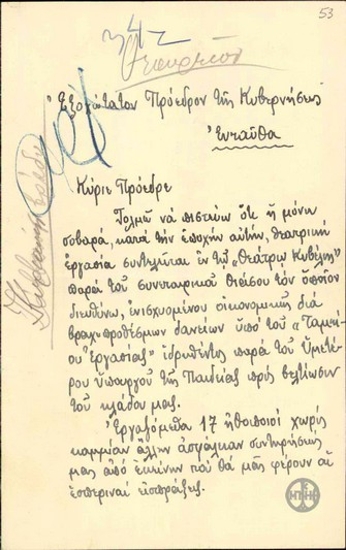 53
342
Ἐξοχώτατον Πρόεδρον τῆς Κυβερνήσεως
Ἐνταῦθα
Κύριε Πρόεδρε
Τολμῶ νὰ πιστεύω ὅτι ἡ μόνη
σοβαρά, κατὰ τὴν ἐποχὴν αὐτήν, θεατρικὴ
ἐργασία συντελεῖται ἐν τῷ „Θεάτρῳ Κυβέλης"
παρὰ τοῦ συνεταιρικοῦ θιάσου τὸν ὁποῖον
διευθύνω, ἐνισχυομένου οἰκονομικῶς διὰ
βραχυπροθέσμων δανείων ὑπὸ τοῦ „Ταμεί-
ου Ἐργασίας" ἱδρυθέντος παρὰ τοῦ Ὑμετέ-
ρου Ὑπουργοῦ τῆς Παιδείας πρὸς βελτίωσιν
τοῦ κλάδου μας.
Ἐργαζόμεθα 17 ἠθοποιοὶ χωρὶς
καμμίαν ἄλλην ἀσφάλειαν συντηρήσεώς
μας ἀπὸ ἐκείνην ποῦ θὰ μᾶς φέρουν αἱ
ἑσπεριναὶ εἰσπράξεις.